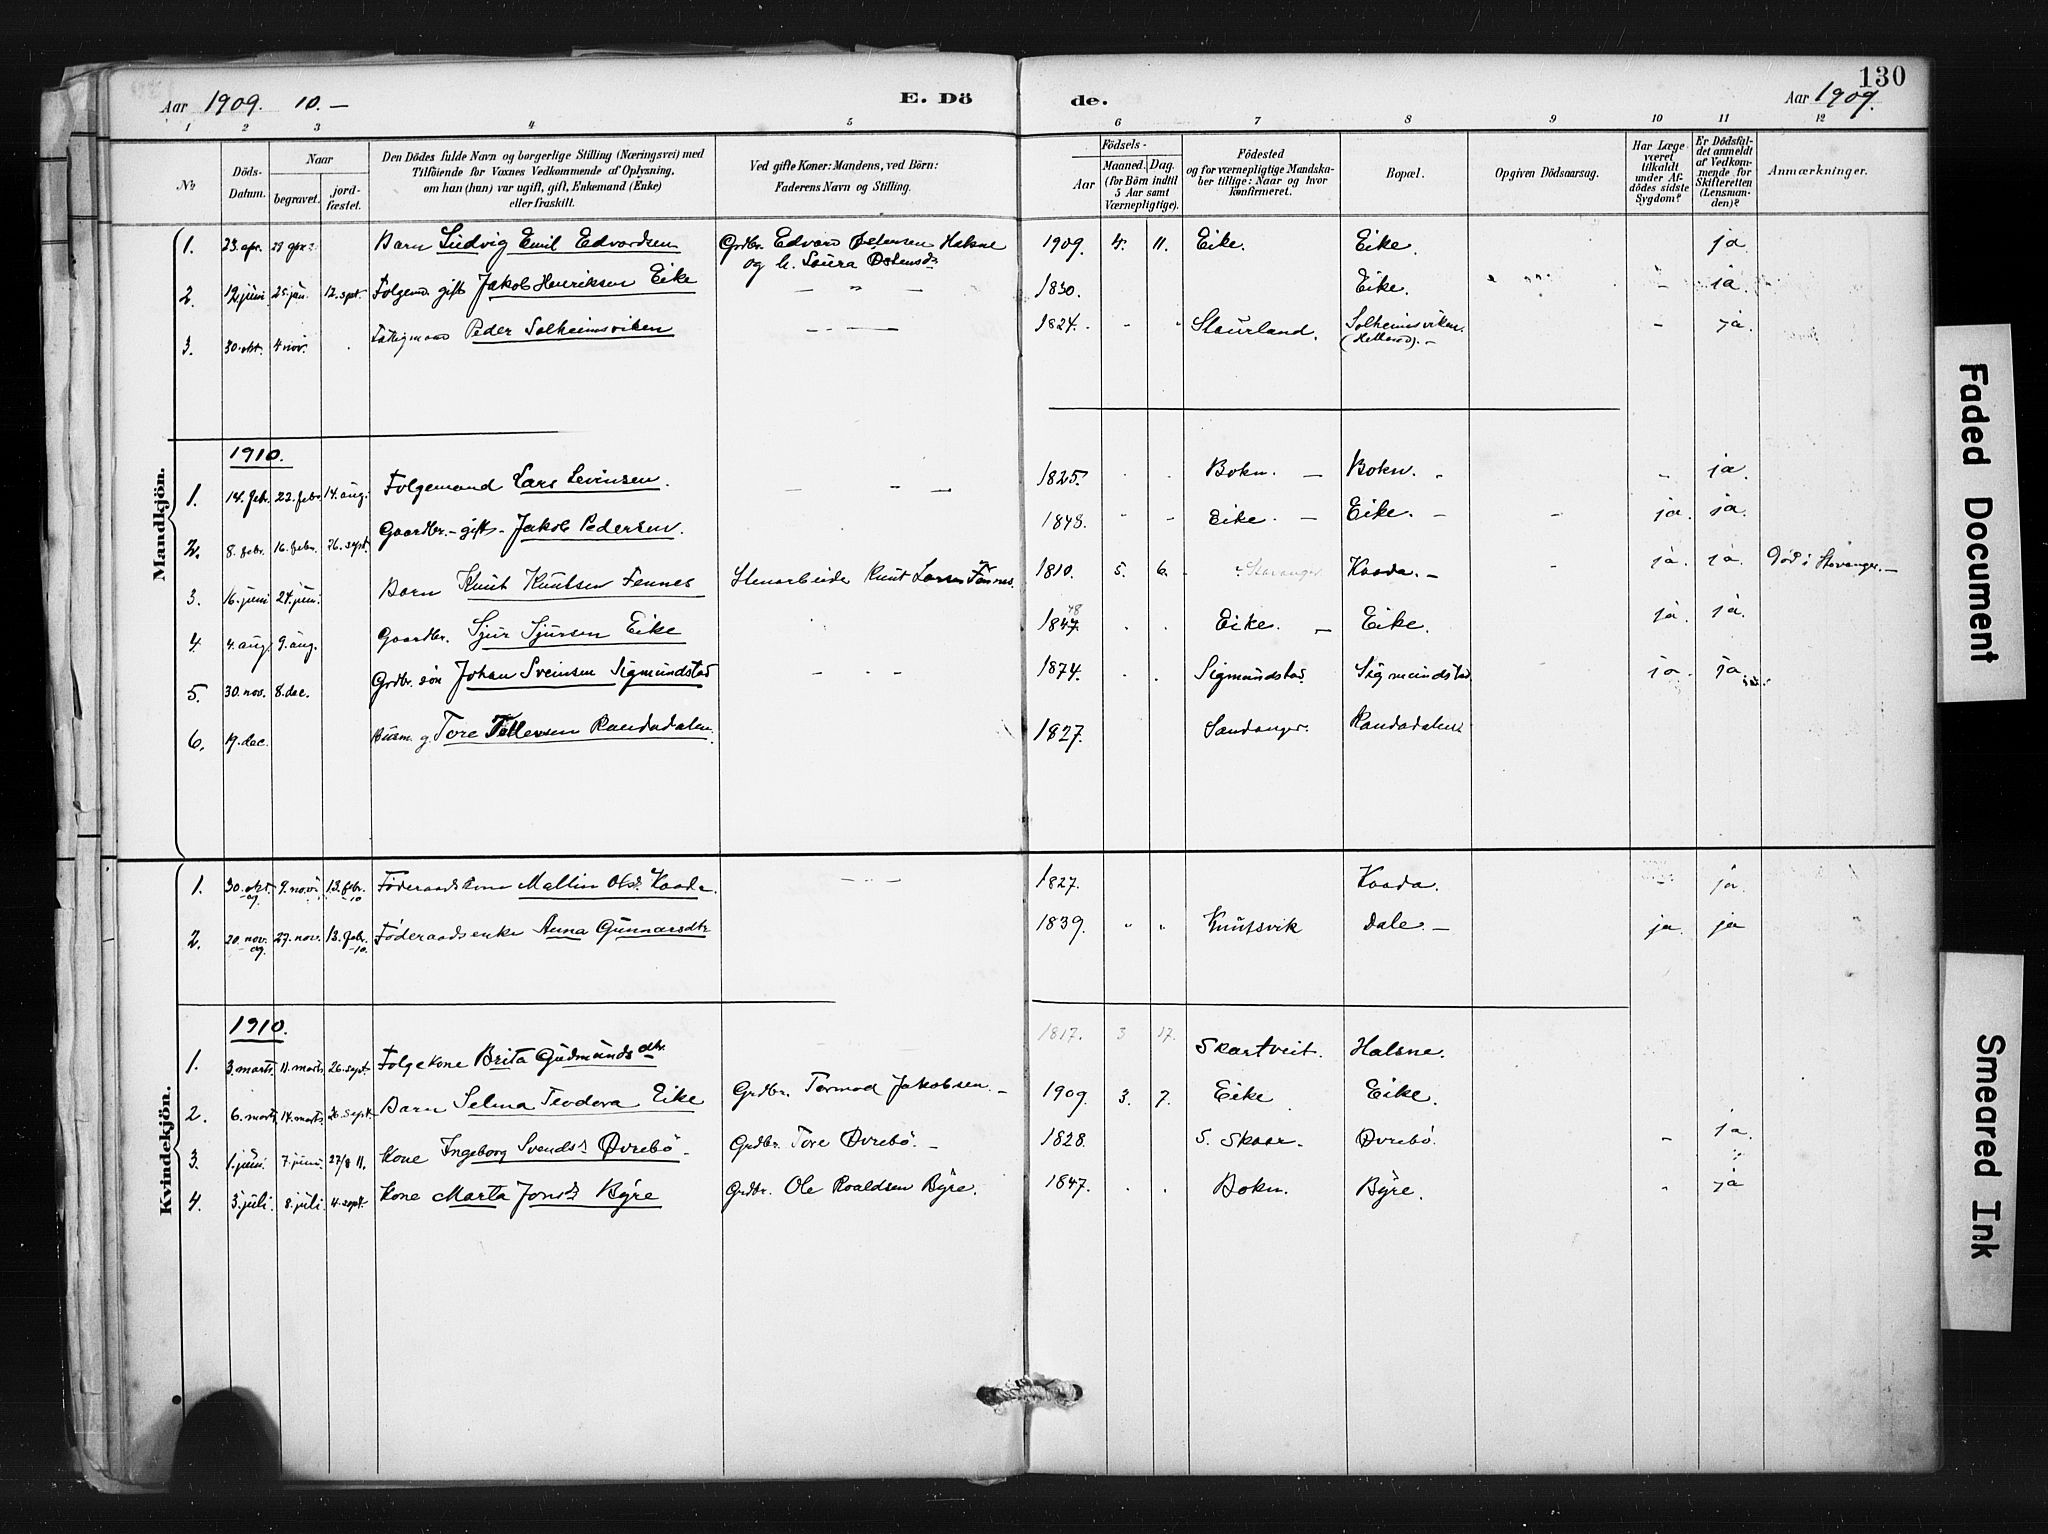 130
Aar 1909. 10. — E. Dö de. Aar 1909.
1 2 3 4 5 6 7 8 9 10 11 12
№
Döds-Datum.
Naar
begravet.
jord-fæstet.
Den Dödes fulde Navn og borgerlige Stilling (Næringsvei) med
Tilföiende for Voxnes Vedkommende af Oplysning,
om han (hun) var ugift, gift, Enkemand (Enke)
eller fraskilt.
Ved gifte Koner: Mandens, ved Börn:
Faderens Navn og Stilling.
Födsels-
Aar
Maaned. Dag.
(for Börn indtil
5 Aar samt
Værnepligtige).
Födested
og for værnepligtige Mandska-
ber tillige: Naar og hvor
konfirmeret.
Bopæl.
Opgiven Dödsaarsag.
Har Læge
været
tilkaldt
under Af-
dödes sidste
Sygdom?
Er Dödsfal-
det anmeldt
af Vedkom-
mende for
Skifteretten
(Lensman-
den)?
Anmærkninger.
Mandkjön.
1. 23. apr. Barn Ludvig Emil Edvardsen Grdbr. Edvard Østensen Halsne 1909 4. 11. Eike. Eike. ja
og h. Laura Østensd.
2. 12 juni 25. jun. 12. spt. Folgem. gift Jakob Henriksen Eike 1830. Eike. ja.
3. 30. okt. 4 nov. Peder Solheimsviken 1824. Staurland. Solheimsviken ja.
1910.
1. 14. febr. 22. febr. 14. aug. Folgemand Lars Levinsen. 1825. Bokn. — Bokn. ja.
2. 8. febr. 16. febr. 26. sept. Gaardbr. — gift — Jakob Pedersen. 1843. Eike. — Eike. — ja. ja.
3. 16. juni 24. juni. Barn Knut Knutsen Fennes Stenarbeide Knut Larsen Fennes. 1810. 5. 6. Stavanger Kaada. — ja. ja. Död i Stavanger. —
4 4. aug. 9. aug. Gaardbr. Sjur Sjursen Eike 1847 48 Eike. — Eike. ja. ja.
5. 30. nov. 8. dec. Grdbr. sön Johan Sveinsen Sigmundstad 1874. Sigmundstad Sigmundstad ja. ja.
6. 19. dec. Tore Tollevsen Randadalen. 1827. Sandanger. Randadalen
Kvindekjön.
1. 30. okt. 9. nov. 13. febr. -10 Føderaadskone Mallin Olsd. Kaada. 1827. Kaada. ja.
2. 20. nov. 27. nov. 13. febr. -10. Føderaadsenke Anna Gunnarsdtr 1839. Knutsvik Dale. — ja. ja
1910.
1. 3. marts. 11. marts 26. sept. Folgekone Brita Gudmundsdtr. 1817. 3 17. Skartveit. Halsne.
2. 6. marts. 14. marts. 26. sept. Barn Selma Teodora Eike Grdbr. Tormod Jakobsen. — 1909. 3. 7. Eike Eike.
3. 1. juni. 7. juni. 27/8 11. Kone Ingeborg Svends. Øvrebö — Grdbr. Tore Øvrebö. — 1828. S. Skaar. Øvrebö. ja.
4. 3. juli. 8. juli 4. sept. Kone Marta Jonsd. Byre Grdbr. Ole Roaldsen Byre. 1847. Bokn. Byre. ja
Faded Document
Smeared Ink